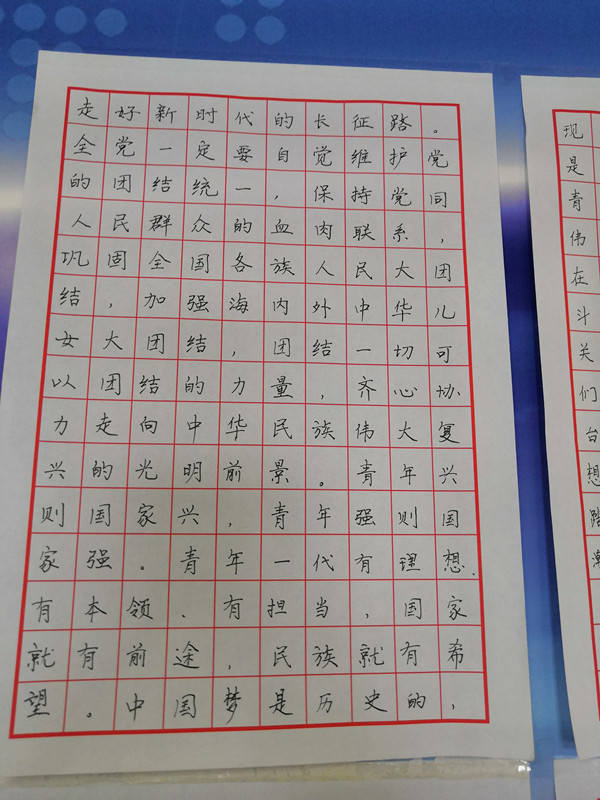 走好新时代的长征路。
全党一定要自觉维护党
的团结统一，保持党同
人民群众的血肉联系，
巩固全国各族人民大团
结，加强海内外中华儿
女大团结，团结一切可
以团结的力量，齐心协
力走向中华民族伟大复
兴的光明前景。青年兴
则国家兴，青年强则国
家强。青年一代有理想、
有本领、有担当，国家
就有前途，民族就有希
望。中国梦是历史的，
现
是
青
伟
在
斗
关
们
台
想
踏
潮